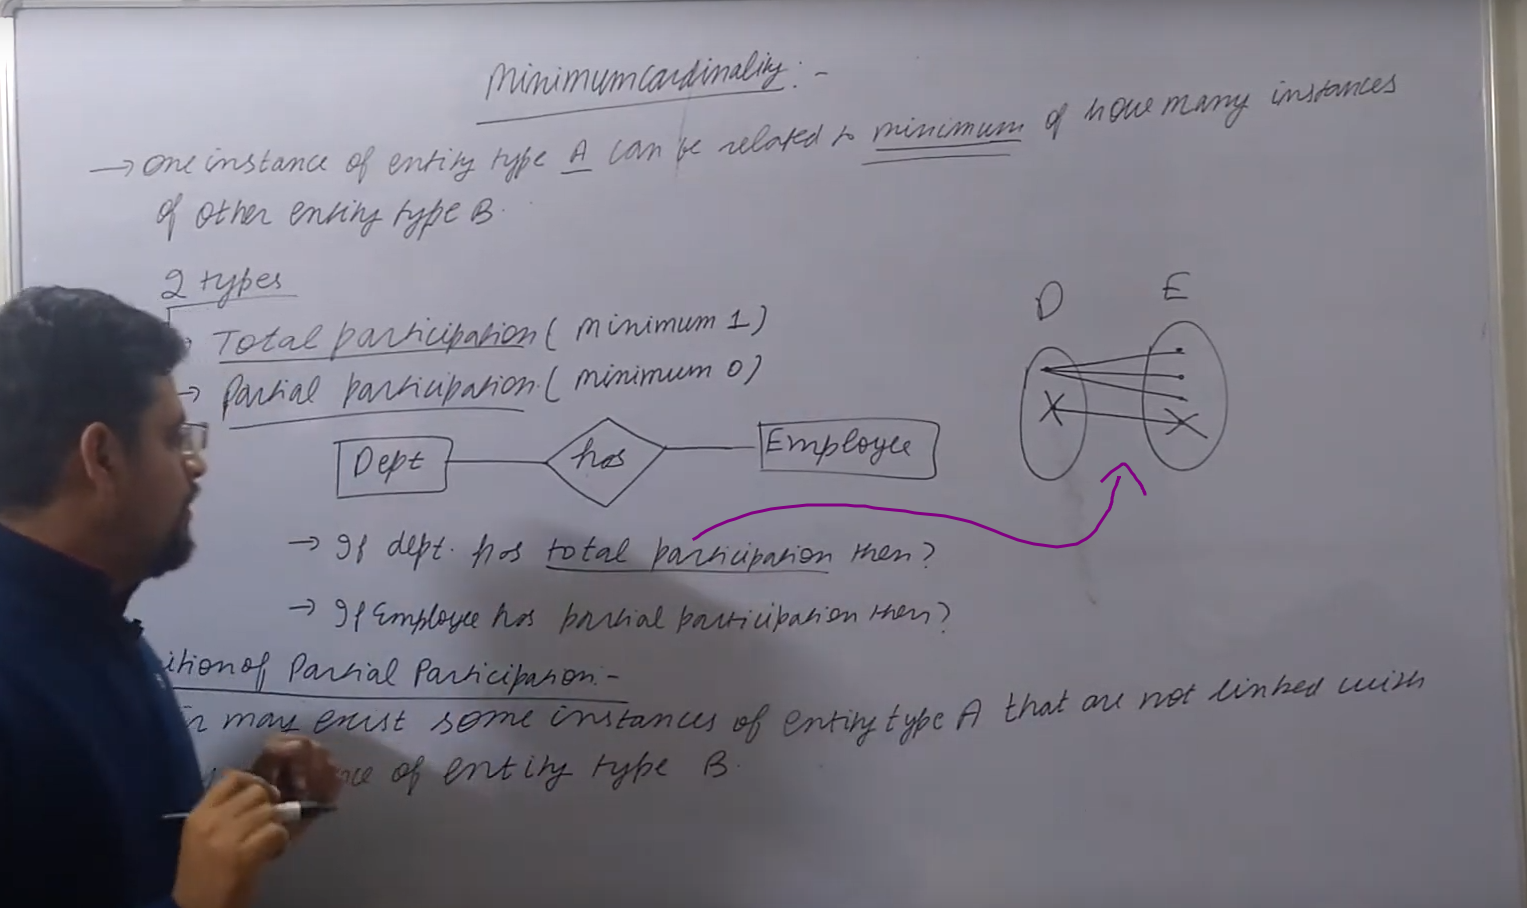 Minimum cardinality: -
→ one instance of entity type A can be related to minimum of how many instances
of other entity type B.
2 types
→ Total participation ( minimum 1 )
→ Partial participation ( minimum 0 )
D E
Dept has Employee
→ If dept. has total participation then?
→ If Employee has partial participation then?
ition of Partial Participation: -
may exist some instances of entity type A that are not linked with
of entity type B.